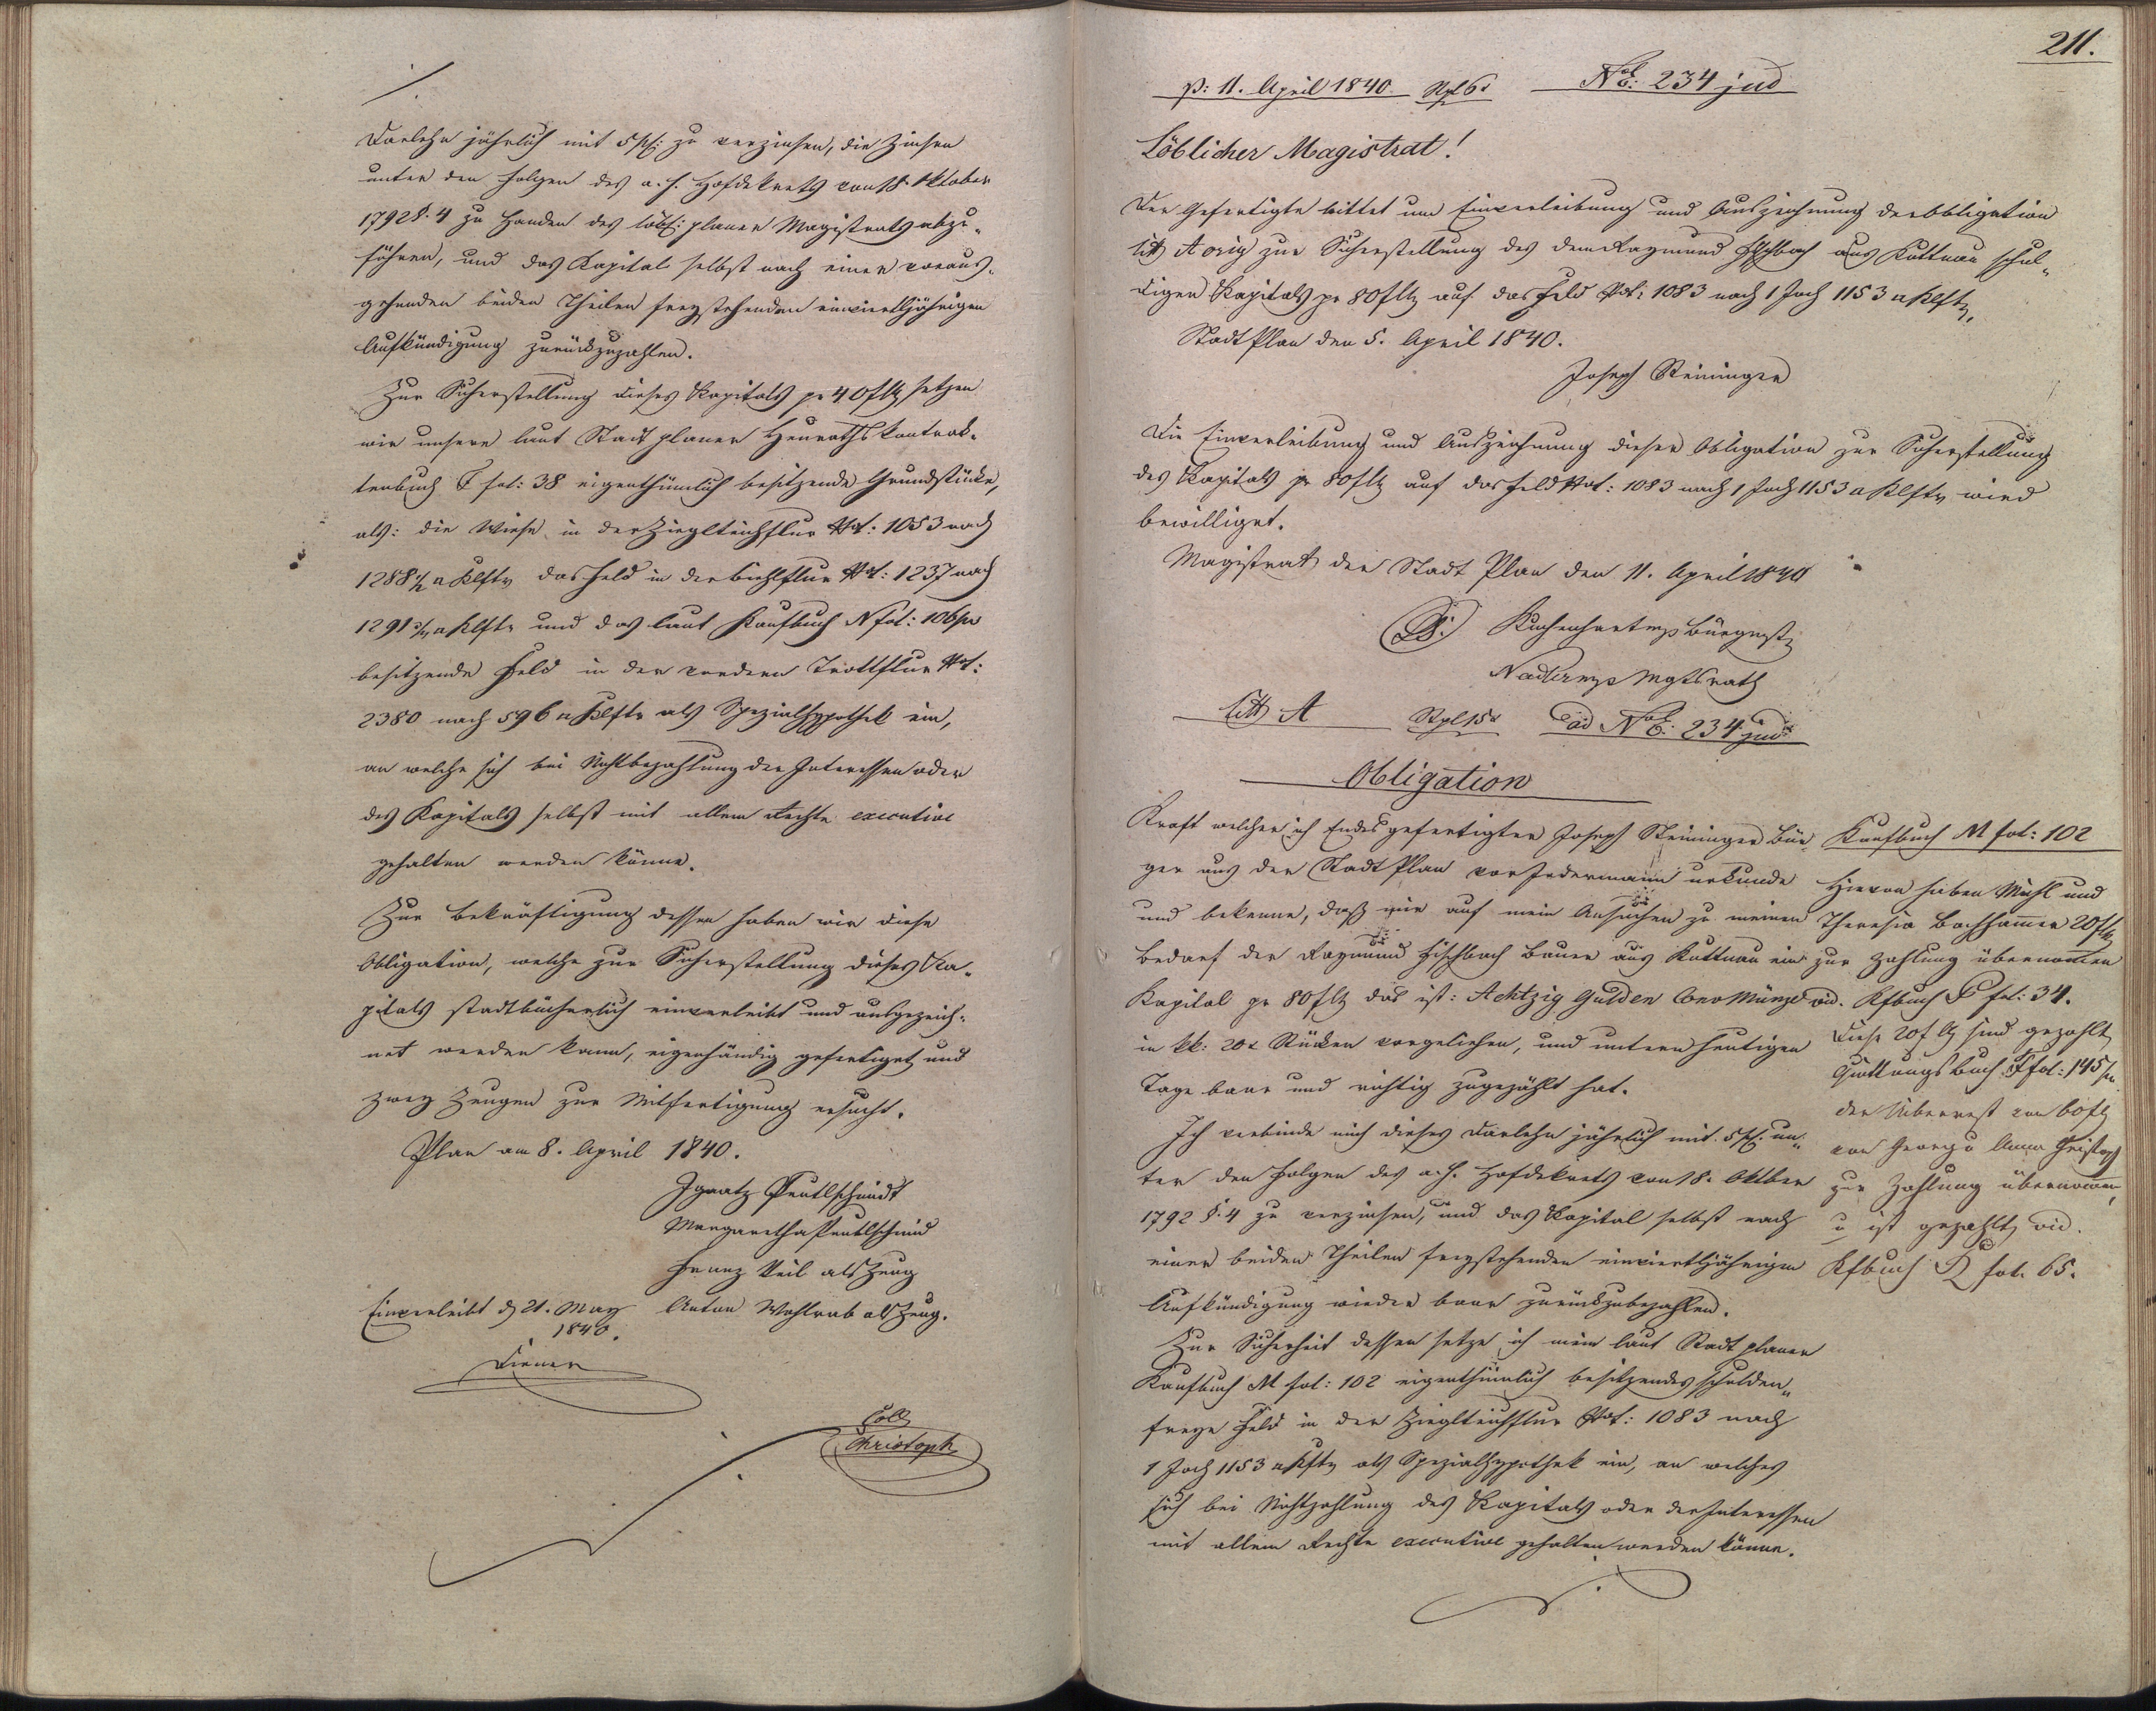 Darlehn jährlich mit 5 pC: zu verzinsen, die Zinsen
unter den Folgen des a. h. Hofdekrets von 18. Oktober
1792 §. 4 zu Handen des löbl: planer Magistrats abzu-
führen, und das Kapital selbst nach einer voraus-
gehenden beiden Theilen freystehenden einvierteljährigen
Aufkündigung zurückzuzahlen.
Zur Sicherstellung dieses Kapitals pr 40 f setzen
wir unsere laut Stadt planer Heurathskontrak-
tenbuch F fol: 38 eigenthümlich besitzende Grundstücke,
als: die Wiese in der Ziegelteichflur Not: 1053 nach
1288 1/2 Klftr das Feld in der Biehlflur Not: 1237 nach
1291 Klftr und das laut Kaufbuch N fol: 106
besitzende Feld in der vordern Trottflur Not:
2380 nach 596 Klftr als Spezialhypothek ein,
an welche sich bei Nichtbezahlung der Interessen oder
des Kapitals selbst mit allem Rechte executive
gehalten werden könne.
Zur Bekräftigung dessen haben wir diese
Obligation, welche zur Sicherstellung dieses Ka-
pitals stadtbücherlich einverleibt und ausgezeich-
net werden kann, eigenhändig gefertiget und
zwey Zeugen zur Mitfertigung ersucht.
Plan am 8. April 1840.
Ignatz Peutlschmidt
Margaretha Peutlschmid
Franz Keil als Zeug
Einverleibt d 21. May Anton Wohlrab als Zeug.
1840.
Diener
Coll
Christoph
211.
p: 11. April 1840. Stpl 6x No E: 234 jud
Löblicher Magistrat!
Der Gefertigte bittet um Einverleibung und Auszeichnung der Obligation
Litt A orig zur Sicherstellung des dem Raymund Fischbach aus Kuttnau schul-
digen Kapitals pr 80 f auf das Feld Not: 1083 nach 1 Joch 1153 Klftr.
Stadt Plan den 5. April 1840.
Joseph Steininger
Die Einverleibung und Auszeichnung dieser Obligation zur Sicherstellung
des Kapitals pr 80 f auf das Feld Not: 1083 nach 1 Joch 1153 Klftr wird
bewilliget.
Magistrat der Stadt Plan den 11. April 1840
Bürgmst
Nadler Mgtsrath
Litt A Stpl 15x ad No E: 234 jud
Obligation
Kraft welcher ich Endesgefertigter Joseph Steininger Bür-
ger aus der Stadt Plan vor Jedermann urkunde
und bekenne, daß mir auf mein Ansuchen zu meinen
Bedarf der Raymund Fischbach Bauer aus Kuttnau ein
Kapital pr 80 f das ist: Achtzig Gulden Conv Münze
in kk: 20x Stücken vorgeliehen, und untern heutigen
Tage baar und richtig zugezählt hat.
Ich verbinde mich dieses Darlehn jährlich mit 5 pC. un-
ter den Folgen des a. h. Hofdekrets von 18. Oktber
1792 §. 4 zu verzinsen, und das Kapital selbst nach
einer beiden Theilen freystehenden einvierteljährigen
Aufkündigung wieder baar zurückzubezahlen.
Zur Sicherheit dessen setze ich mein laut Stadt planer
Kaufbuch M fol: 102 eigenthümlich besitzendes schulden-
freye Feld in der Ziegelteichflur Not: 1083 nach
1 Joch 1153 Klftr als Spezialhypothek ein, an welches
sich bei Nichtzahlung des Kapitals oder der Interessen
mit allem Rechte executive gehalten werden könne.
Kaufbuch M fol: 102
Hievon haben Michl und
Theresia Bachhammer 20 f
zur Zahlung übernomen
vid. Kfbuch P fol: 34.
Diese 20 f sind gezahlt
Quittungsbuch F fol: 145
der Überrest von 60 f
von Georg u Anna Christoph
zur Zahlung übernomen,
u ist gezahlt, vid.
Kfbuch Q fol. 65.